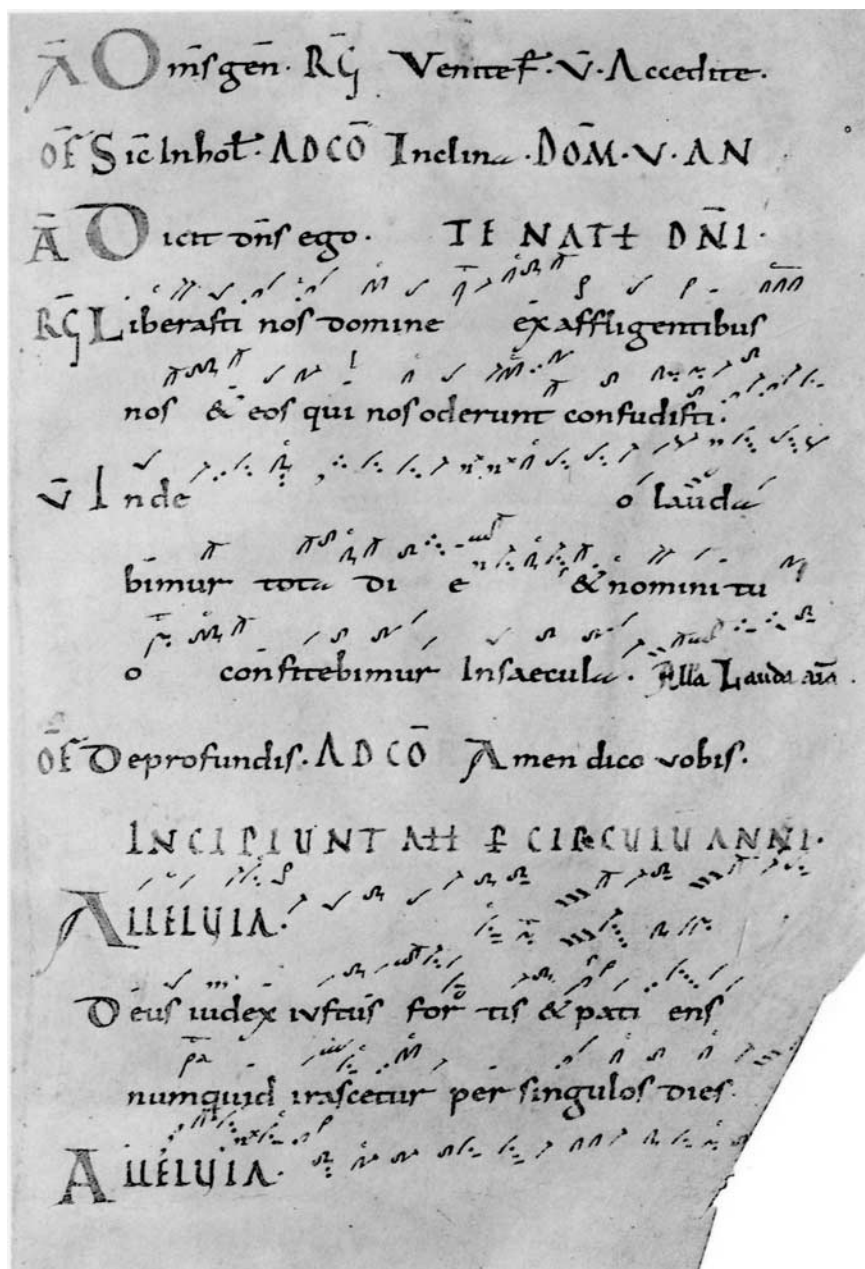 Ā Om̄s gen̄. R͞G Venite f̄. v̄. Accedite.
OF̄ Sic̄ In hoł. AD CŌ Inclina. DOM̄. V. AN
Ā Dicit dn̄s ego. DN̄I.
R͞G Liberasti nos domine ex affligentibus
nos & eos qui nos oderunt confudisti.
v̄ In de o lauda
bimur tota di e & nomini tu
o confitebimur In saecula. All̄a Lauda aīa.
OF̄ De profundis. AD CŌ Amen dico vobis.
INCIPIUNT CIRCULU ANNI.
ALLELUIA.
Deus iudex iustus for tis & pati ens
numquid irascetur per singulos dies.
ALLELUIA.